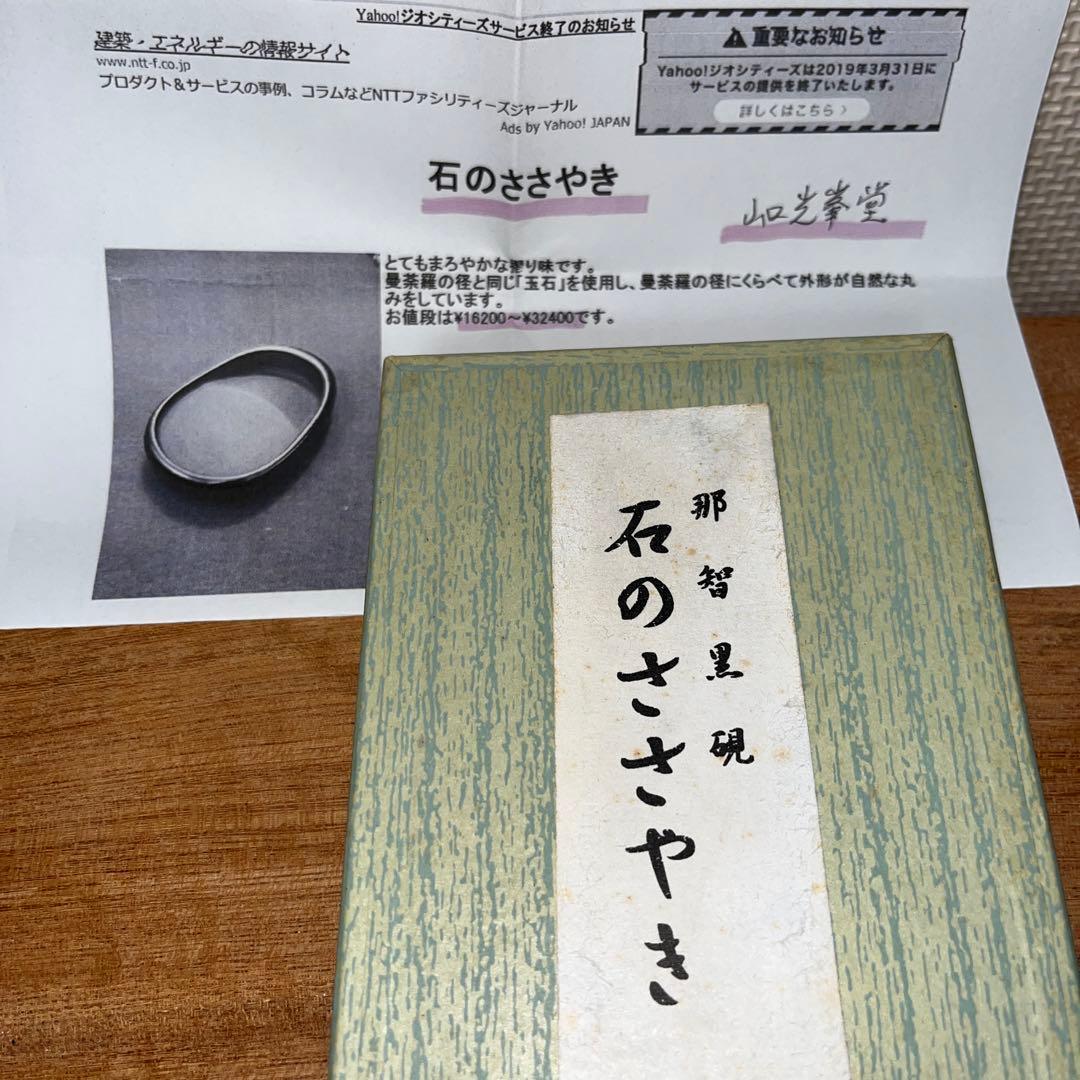 Yahoo!ジオシティーズサービス終了のお知らせ
建築・エネルギーの情報サイト
www.ntt-f.co.jp
プロダクト＆サービスの事例、コラムなどNTTファシリティーズジャーナル
Ads by Yahoo! JAPAN
重要なお知らせ
Yahoo!ジオシティーズは2019年3月31日に
サービスの提供を終了いたします。
詳しくはこちら 〉
石のささやき
山口光峯堂
とてもまろやかな磨り味です。
曼荼羅の径と同じ「玉石」を使用し、曼荼羅の径にくらべて外形が自然な丸
みをしています。
お値段は¥16200～¥32400です。
那智黒硯
石のささやき